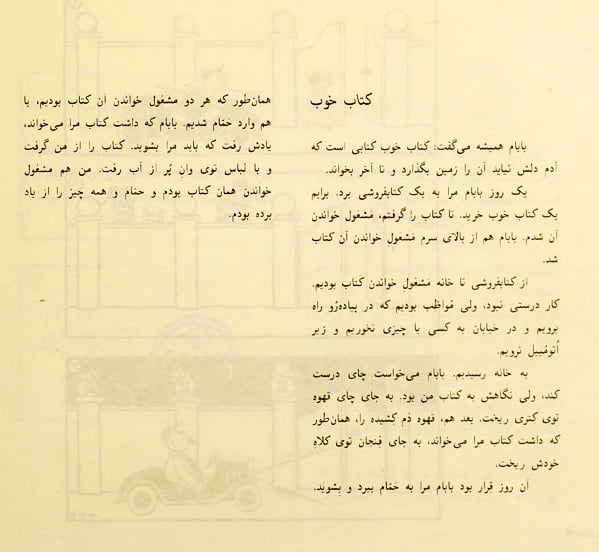 کتاب خوب
بابام همیشه می‌گفت: کتاب خوب کتابی است که
آدم دلش نیاید آن را زمین بگذارد و تا آخر بخواند.
یک روز بابام مرا به یک کتابفروشی برد. برایم
یک کتاب خوب خرید. تا کتاب را گرفتم، مَشغول خواندن
آن شدم. بابام هم از بالای سرم مشغولِ خواندن آن کتاب
شد.
از کتابفروشی تا خانه مَشغولِ خواندن کتاب بودیم.
کار درستی نبود، ولی مُواظب بودیم که در پیاده‌رُو راه
برویم و در خیابان به کسی یا چیزی نخوریم و زیر
اُتومُبیل نرویم.
به خانه رسیدیم. بابام می‌خواست چای درست
کند، ولی نگاهش به کتاب من بود. به جای چای قهوه
توی کتری ریخت. بعد هم، قهوه دَم کِشیده را، همان‌طور
که داشت کتاب مرا می‌خواند، به جای فِنجان توی کلاهِ
خودش ریخت.
آن روز قرار بود بابام مرا به حَمّام ببرد و بشوید.
همان‌طور که هر دو مشغول خواندن آن کتاب بودیم، با
هم وارد حمّام شدیم. بابام که داشت کتاب مرا می‌خواند،
یادش رفت که باید مرا بشوید. کتاب را از من گرفت
و با لباس توی وان پُر از آب رفت. من هم مشغول
خواندن همان کتاب بودم و حمّام و همه چیز را از یاد
برده بودم.